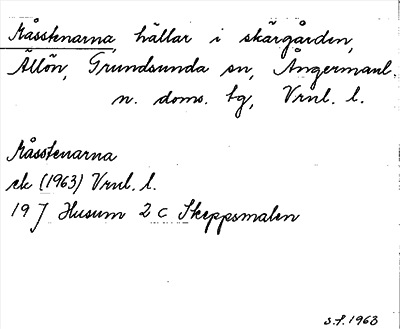 Måsstenarna, hällar i skärgården,
Ällön, Grundsunda sn, Ångermanl.
n. doms. tg, Vrnl. l.
Måsstenarna
ek (1963) Vrnl. l.
19 J Husum 2 c Skeppsmalen
s.f. 1963